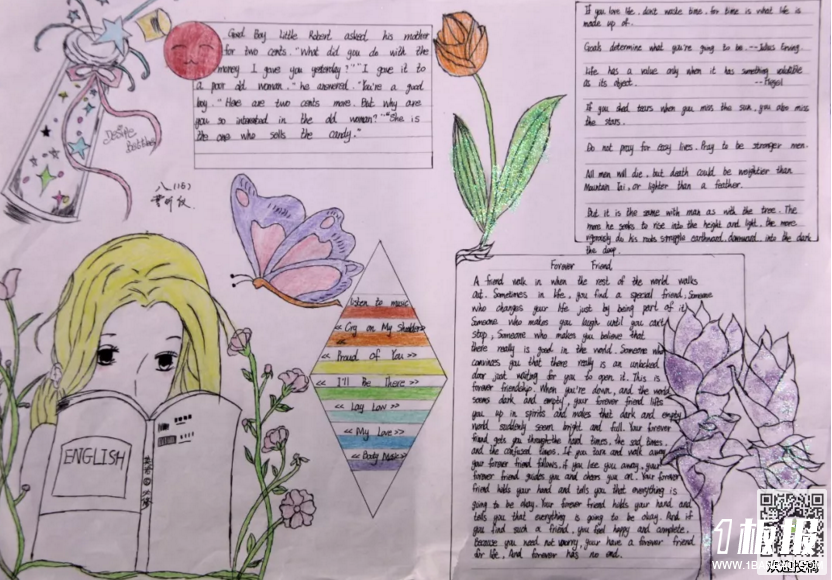 Good Boy Little Robert asked his mother
for two cents. "What did you do with the
money I gave you yesterday?" "I gave it to
a poor old woman." he answered. "You're a good
boy." "Here are two cents more. But why are
you so interested in the old woman?" "She is
the one who sells the candy."
If you love life, don't waste time, for time is what life is
made up of.
Goals determine what you're going to be.
Life has a value only when it has something valuable
as its object. --Hegel
If you shed tears when you miss the sun, you also miss
the stars.
Do not pray for easy lives. Pray to be stronger men.
All men will die, but death could be weightier than
Mountain Tai, or lighter than a feather.
But it is the same with man as with the tree. The
more he seeks to rise into the height and light, the more
vigorously do his roots struggle earthward, downward, into the dark
the deep.
八(16)
listen to music
<< Cry on My Shoulder>>
<< Proud of You >>
<< I'll Be There >>
<< Lay Low >>
<< My Love >>
<< Body Music>>
ENGLISH
Forever Friend
A friend walk in when the rest of the world walks
out. Sometimes in life, you find a special friend; Someone
who changes your life just by being part of it.
Someone who makes you laugh until you can't
stop; Someone who makes you believe that
there really is good in the world. Someone who
convinces you that there really is an unlocked
door just waiting for you to open it. This is
forever friendship. When you're down, and the world
seems dark and empty, your forever friend lifts
you up in spirits and makes that dark and empty
world suddenly seem bright and full. Your forever
friend gets you through the hard times, the sad times,
and the confused times. If you turn and walk away,
your forever friend follows, if you lose you away, your
forever friend guides you and cheers you on. Your forever
friend holds your hand and tells you that everything is
going to be okay. Your forever friend holds your hand and
tells you that everything is going to be okay. And if
you find such a friend, you feel happy and complete.
Because you need not worry, your have a forever friend
for life, And forever has no end.
1板报